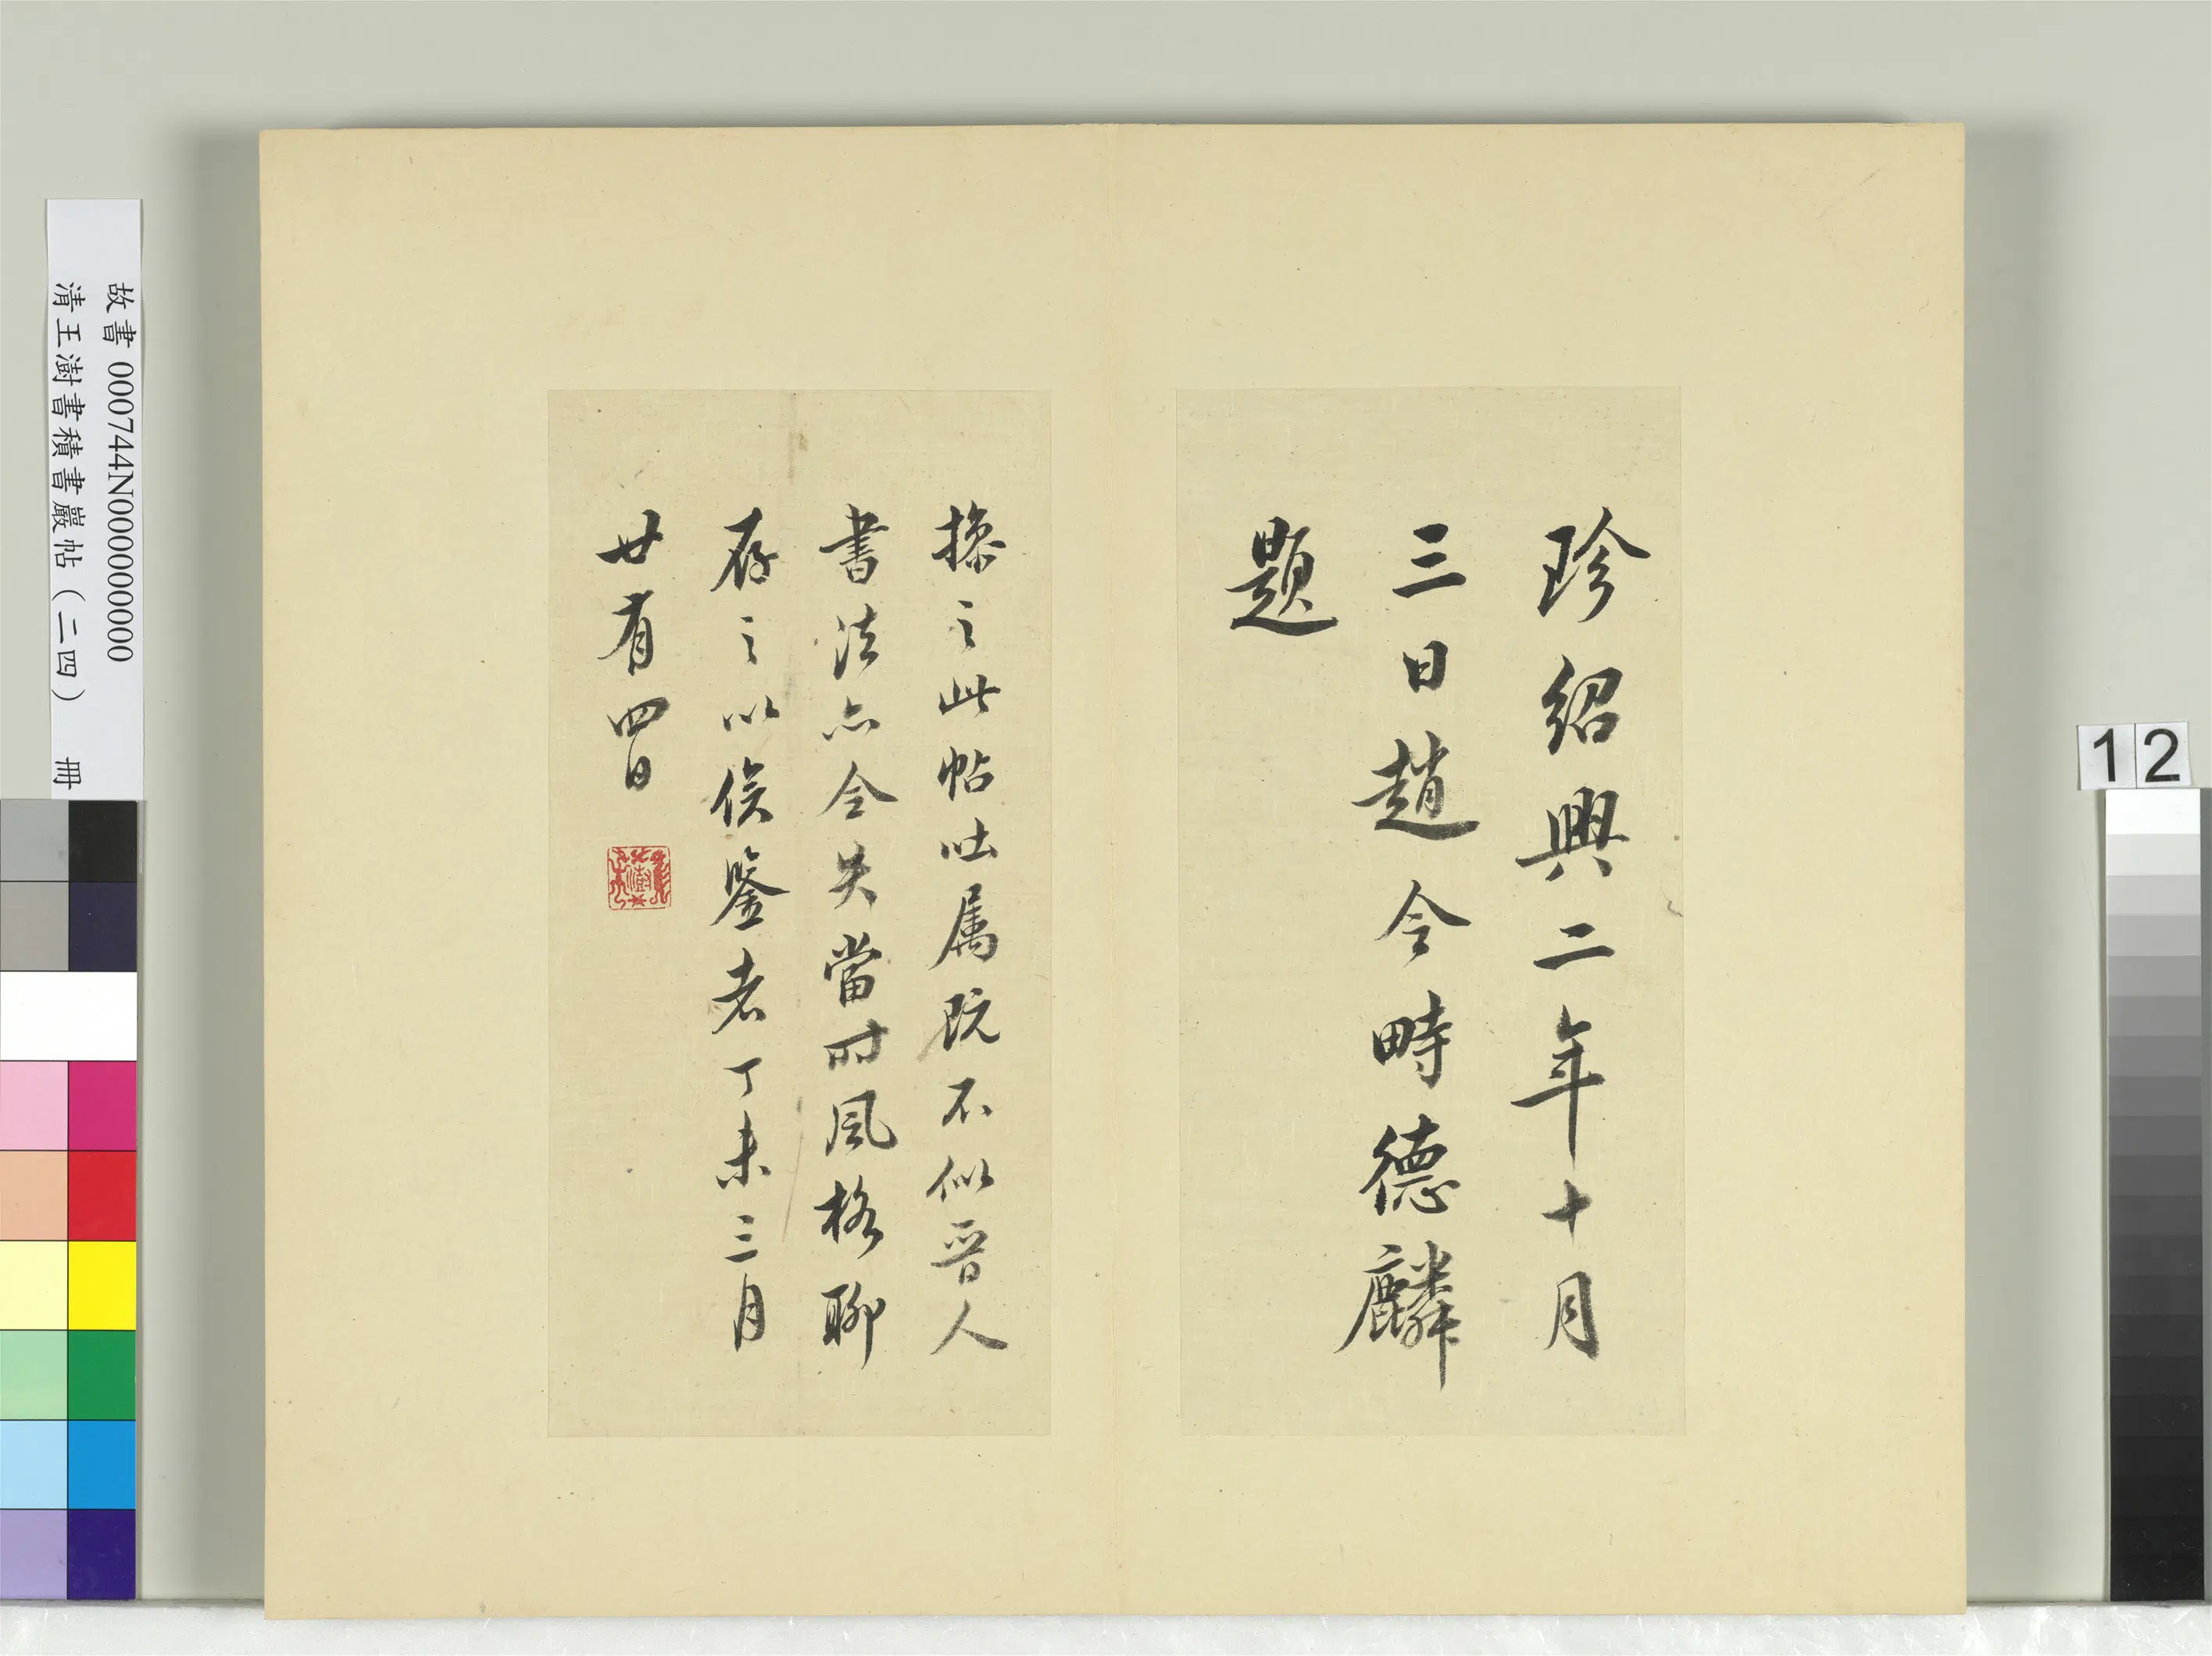 珍紹興二年十月
三日趙令畤德麟
題
操之此帖吐属既不似晉人
書法亦全失當時風格聊
存之以俟鑒者丁未三月
廿有四日
故書 000744N000000000
清王澍書積書巖帖（二四） 冊
12